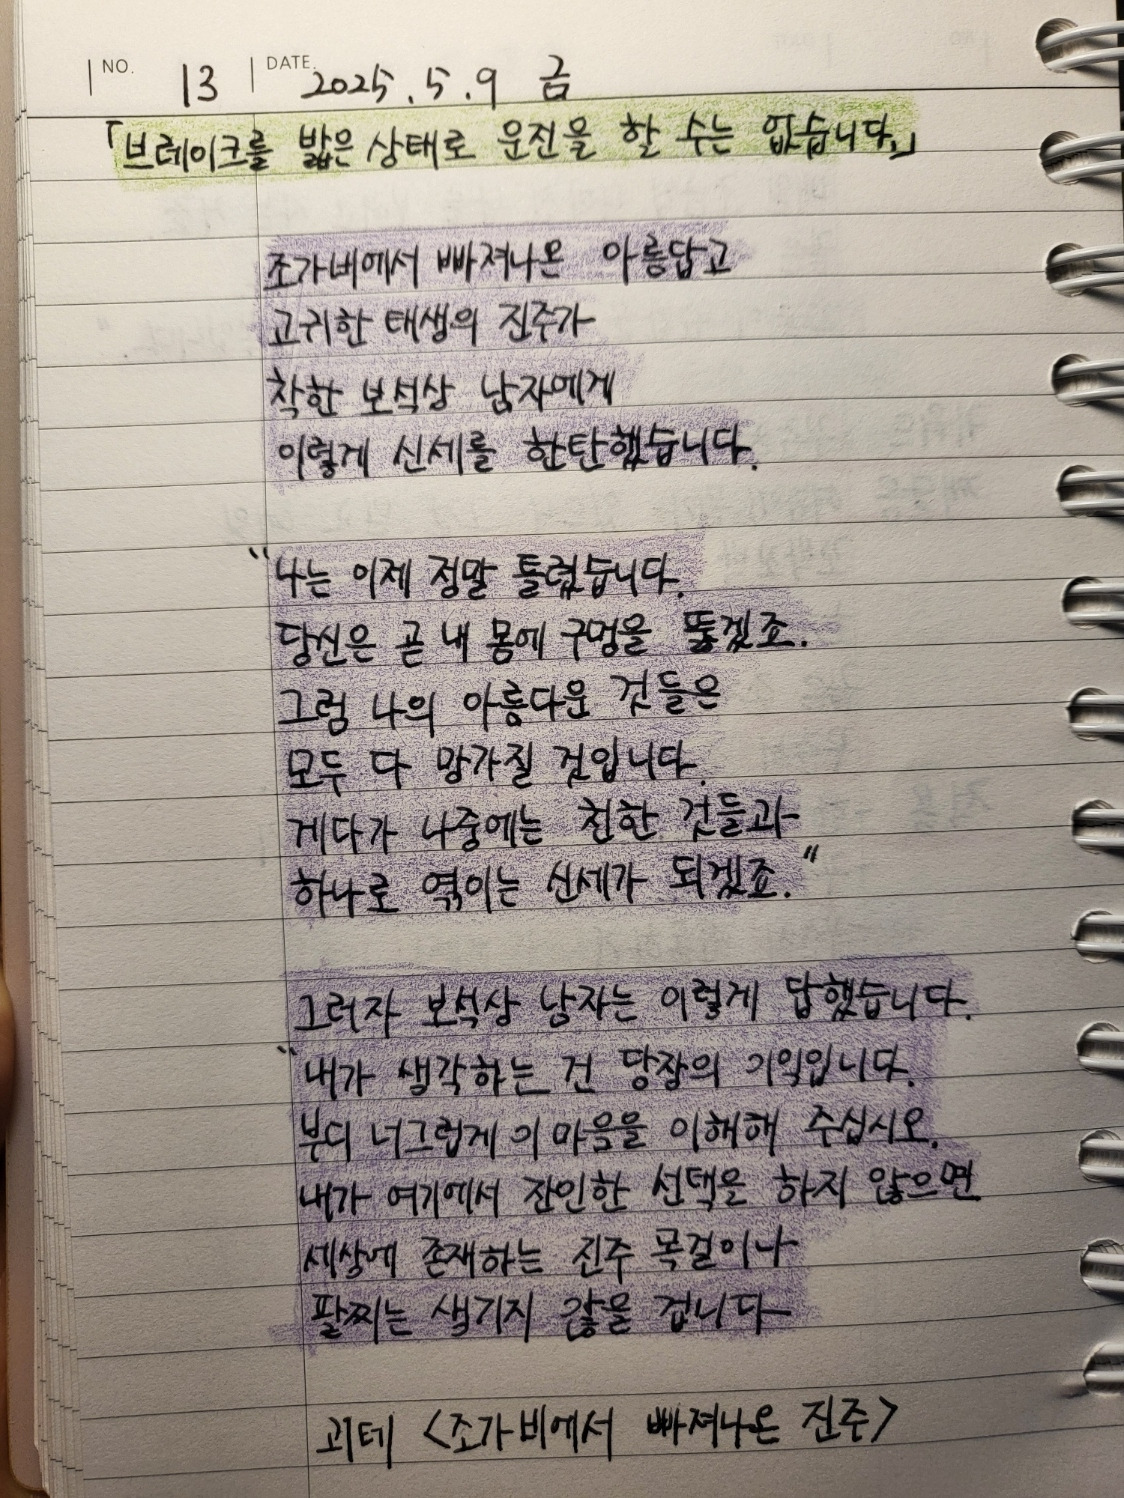 NO. 13 DATE. 2025.5.9 금
「브레이크를 밟은 상태로 운전을 할 수는 없습니다.」
조가비에서 빠져나온 아름답고
고귀한 태생의 진주가
착한 보석상 남자에게
이렇게 신세를 한탄했습니다.
"나는 이제 정말 틀렸습니다.
당신은 곧 내 몸에 구멍을 뚫겠죠.
그럼 나의 아름다운 것들은
모두 다 망가질 것입니다.
게다가 나중에는 천한 것들과
하나로 엮이는 신세가 되겠죠."
그러자 보석상 남자는 이렇게 답했습니다.
"내가 생각하는 건 당장의 기익입니다.
부디 너그럽게 이 마음을 이해해 주십시오.
내가 여기에서 잔인한 선택을 하지 않으면
세상에 존재하는 진주 목걸이나
팔찌는 생기지 않을 겁니다
괴테 <조가비에서 빠져나온 진주>